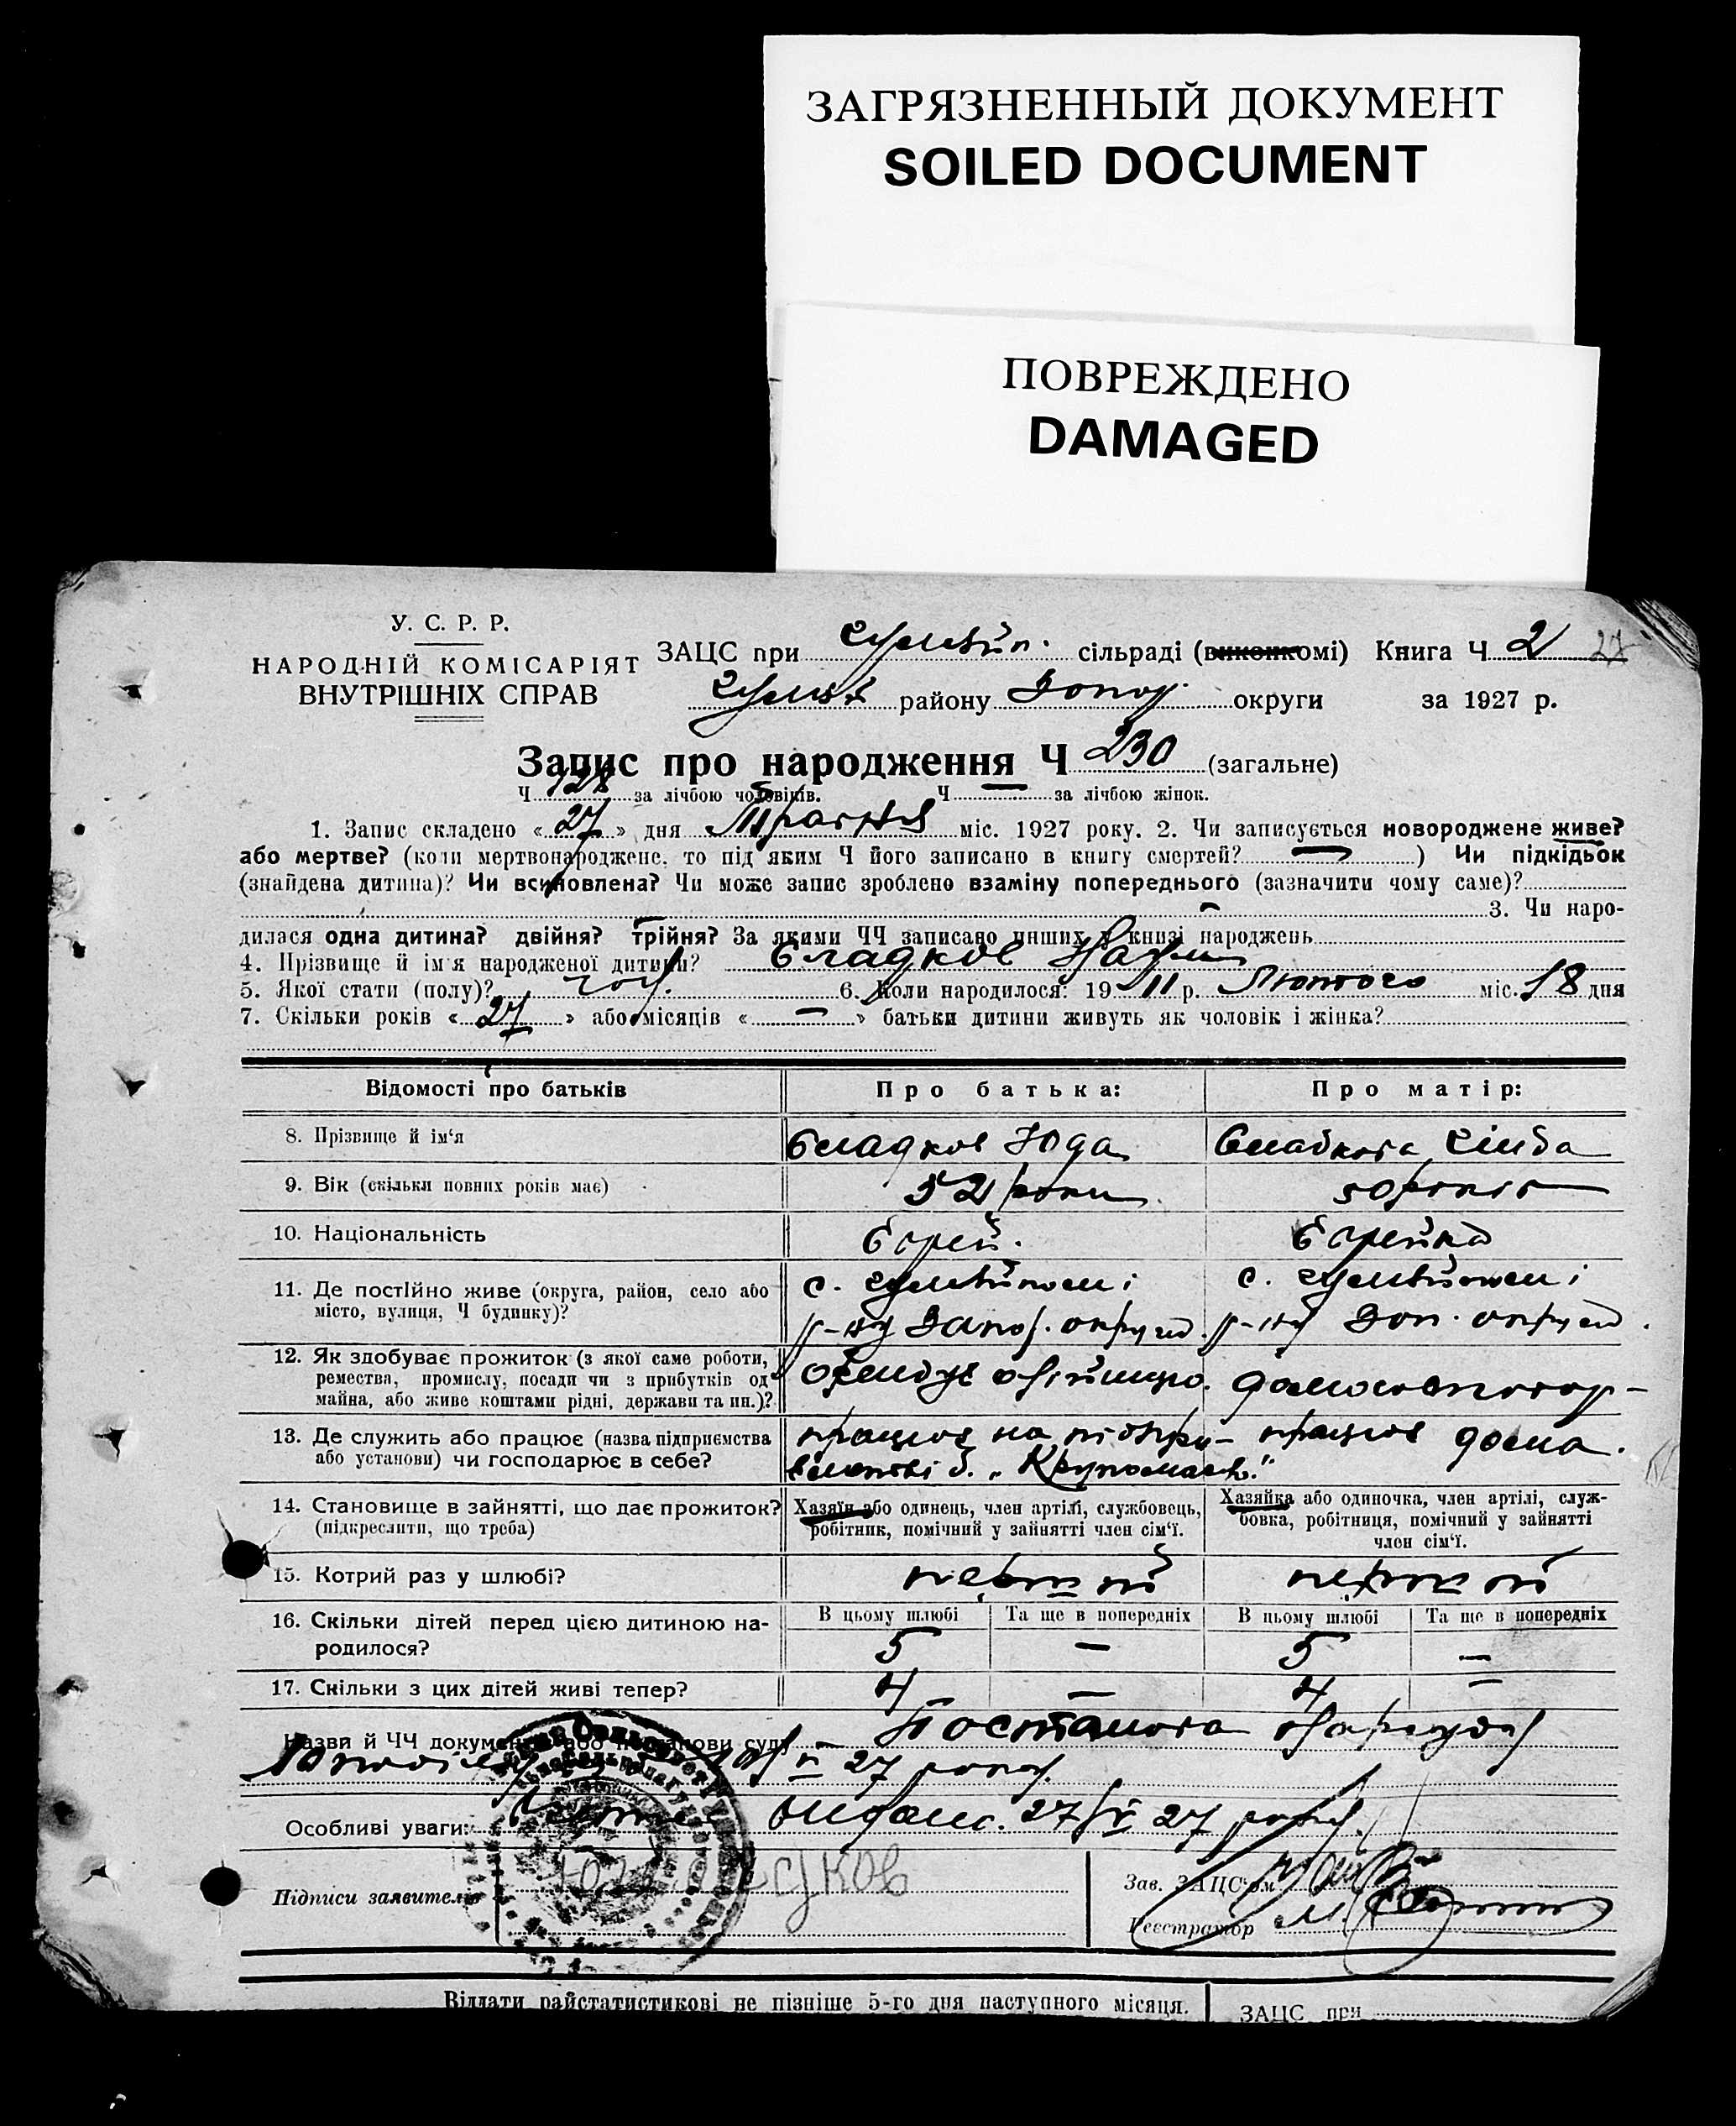 ЗАГРЯЗНЕННЫЙ ДОКУМЕНТ
SOILED DOCUMENT
ПОВРЕЖДЕНО
DAMAGED
У. С. Р. Р.
НАРОДНІЙ КОМІСАРІЯТ
ВНУТРІШНІХ СПРАВ
ЗАЦС при Гуляйп. сільраді (виконкомі) Книга Ч 2 27
Гуляй району Запор. округи за 1927 р.
Запис про народження Ч 230 (загальне)
Ч 128 за лічбою чоловіків. Ч — за лічбою жінок.
1. Запис складено « 27 » дня Травня міс. 1927 року. 2. Чи записується новороджене живе?
або мертве? (коли мертвонароджене, то під яким Ч його записано в книгу смертей? — ) Чи підкідьок
(знайдена дитина)? Чи всиновлена? Чи може запис зроблено взаміну попереднього (зазначити чому саме)?
3. Чи наро-
дилася одна дитина? двійня? трійня? За якими ЧЧ записано инших у книзі народжень
4. Прізвище й ім'я народженої дитини? Сладков Наум
5. Якої стати (полу)? чол. 6. Коли народилося: 19 11 р. Лютого міс. 18 дня
7. Скільки років « 27 » або місяців « — » батьки дитини живуть як чоловік і жінка?
Відомості про батьків Про батька: Про матір:
8. Прізвище й ім'я Сладков Юда Сладкова
9. Вік (скільки повних років має) 52 роки 50 років
10. Національність Єврей. Єврейка
11. Де постійно живе (округа, район, село або місто, вулиця, Ч будинку)?
с. Гуляйполе і р-ну Запор. округи
с. Гуляйполе і р-ну Зап. округи.
12. Як здобуває прожиток (з якої саме роботи, ремества, промислу, посади чи з прибутків од майна, або живе коштами рідні, держави та ин.)?
13. Де служить або працює (назва підприємства або установи) чи господарює в себе?
працює на підпри-
працює дома.
14. Становище в зайнятті, що дає прожиток? (підкреслити, що треба)
Хазяїн або одинець, член артілі, службовець, робітник, помічний у зайнятті член сім'ї.
Хазяйка або одиночка, член артілі, служ-
бовка, робітниця, помічний у зайнятті
член сім'ї.
15. Котрий раз у шлюбі? перший перший
16. Скільки дітей перед цією дитиною на-
родилося?
В цьому шлюбі Та ще в попередніх В цьому шлюбі Та ще в попередніх
5 — 5 —
17. Скільки з цих дітей живі тепер? 4 — 4 —
Назви й ЧЧ документів або постанови суду Постанова Нарсуду
27 року.
Особливі уваги: Видан. 27/V 27 року.
Підписи заявителів
Зав. ЗАЦС'ом
Реєстратор
Віддати райстатистикові не пізніше 5-го дня наступного місяця. ЗАЦС при